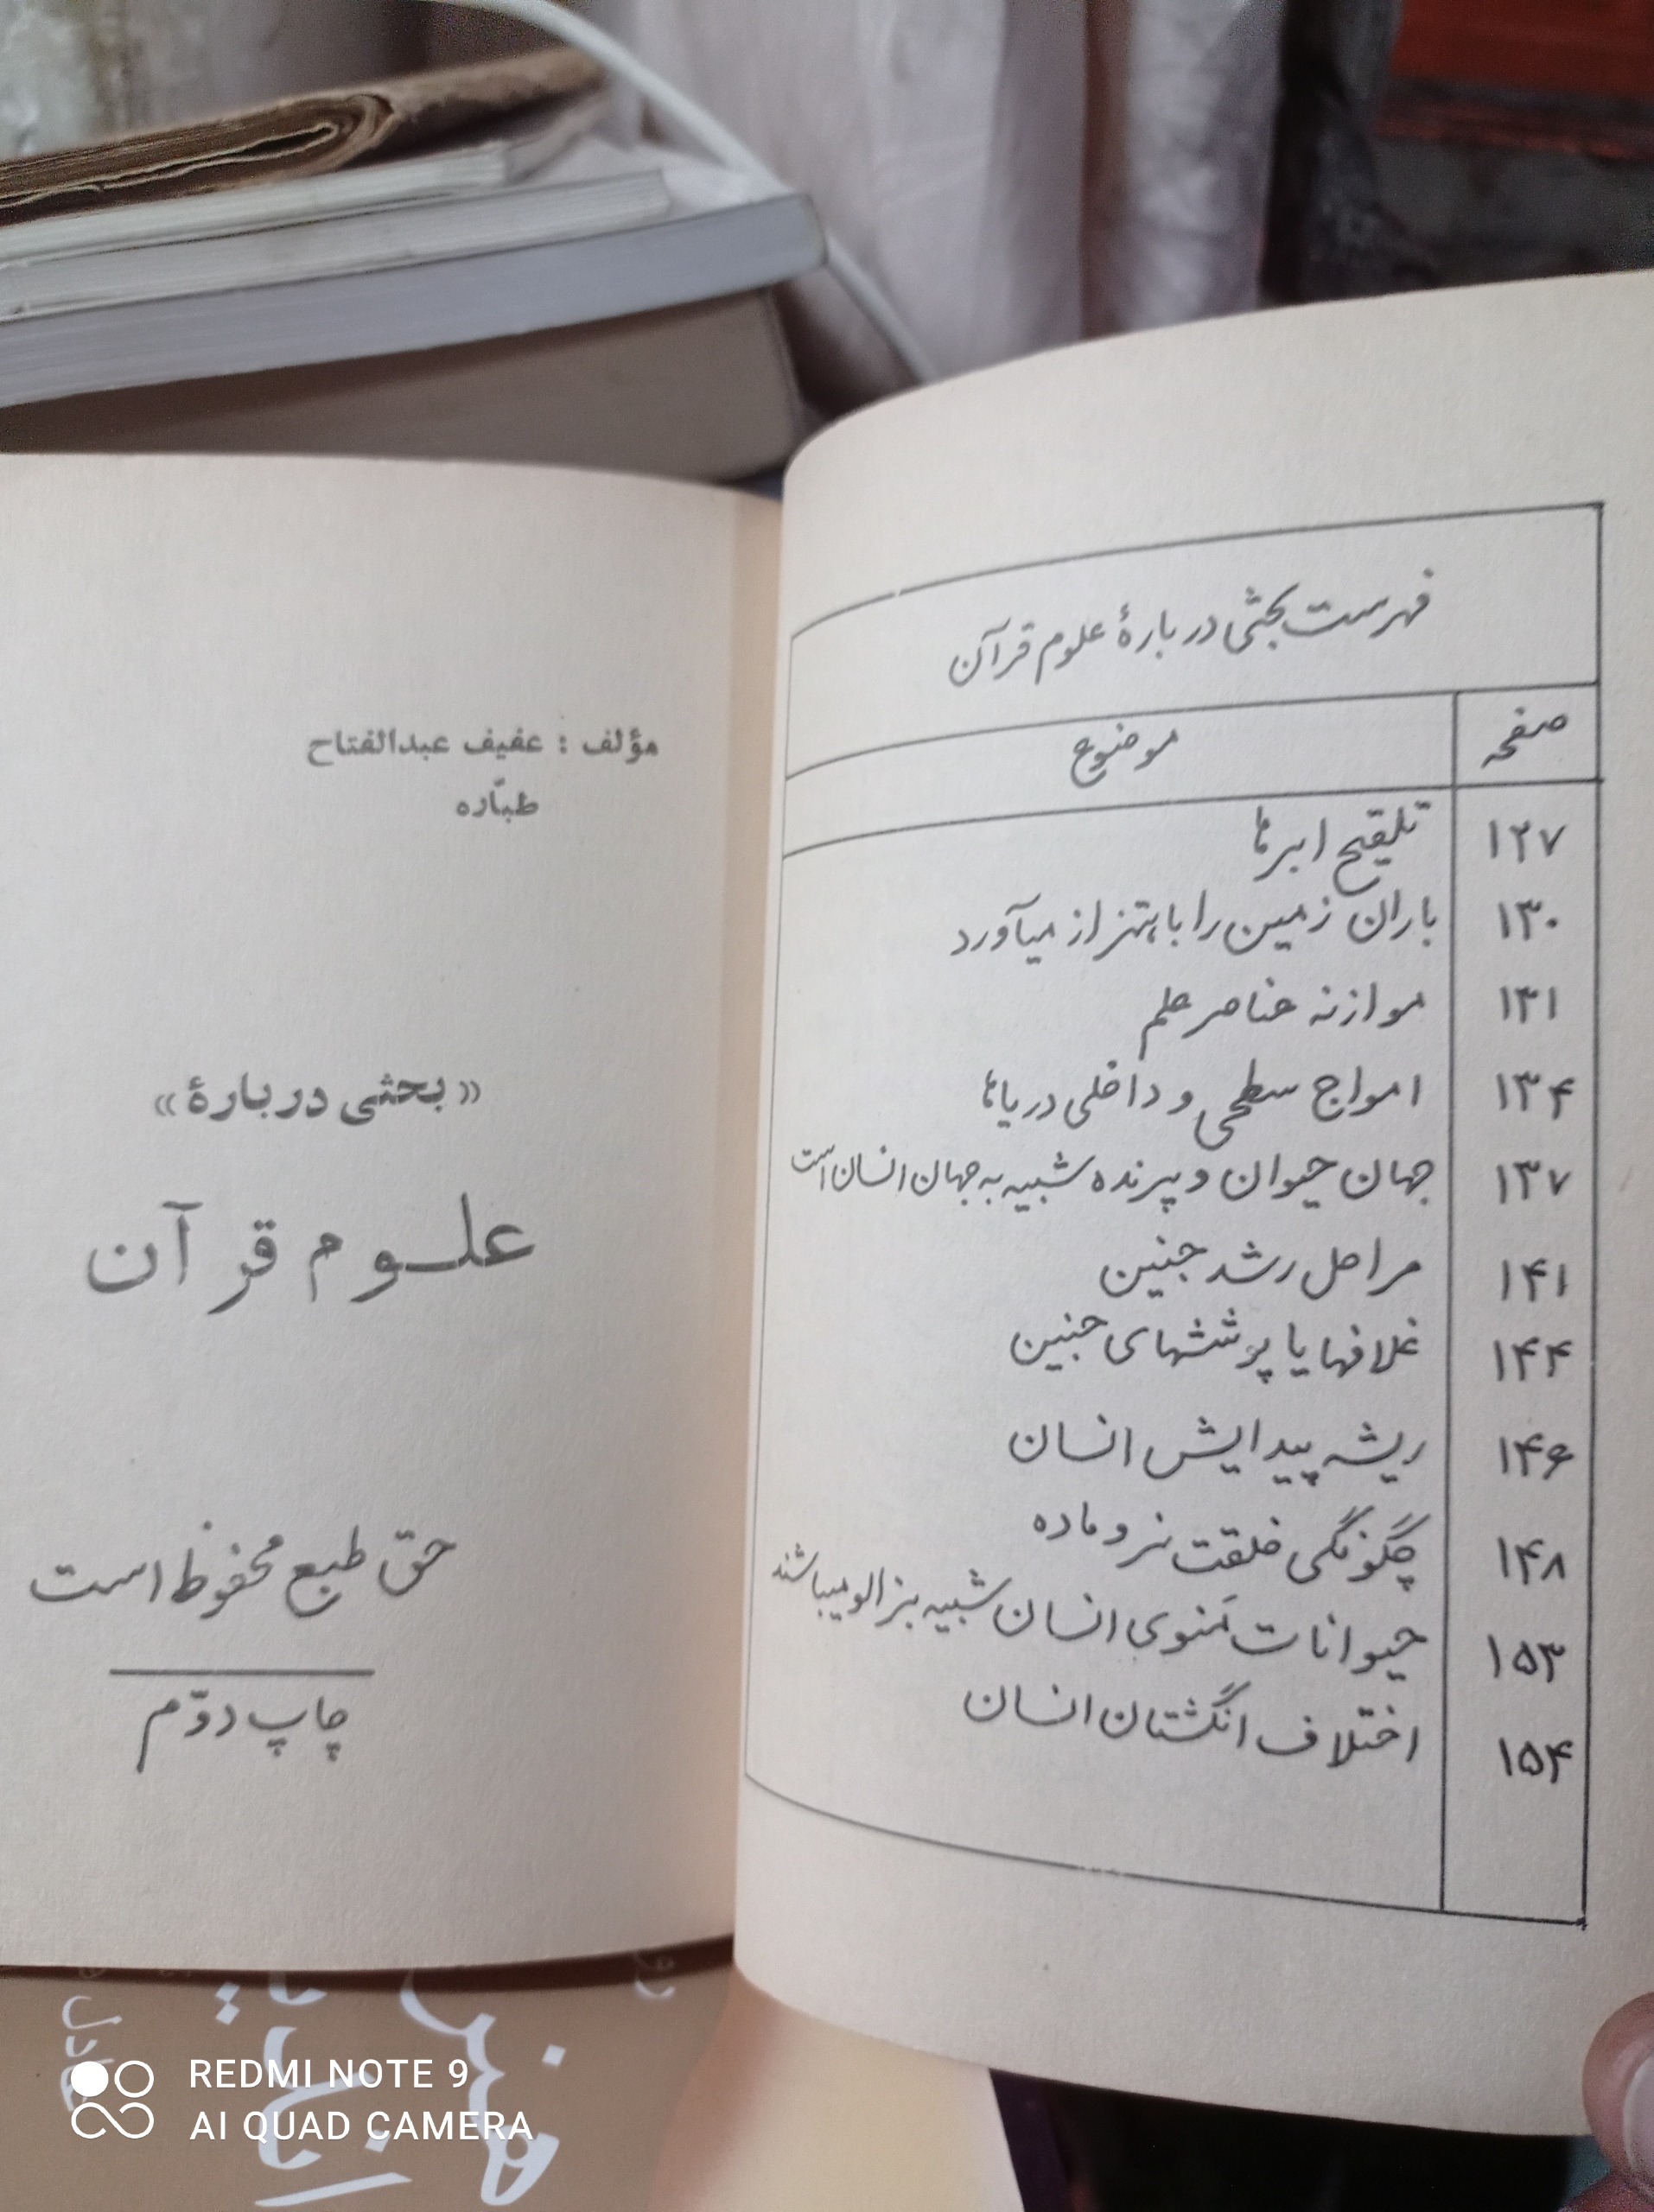 فهرست بحثی دربارهٔ علوم قرآن
صفحه موضوع
۱۲۷ تلقیح ابرها
۱۳۰ باران زمین را باهتزاز میآورد
۱۳۱ موازنه عناصر علم
۱۳۴ امواج سطحی و داخلی دریاها
۱۳۷ جهان حیوان و پرنده شبیه به جهان انسان است
۱۴۱ مراحل رشد جنین
۱۴۴ غلافها یا پوششهای جنین
۱۴۶ ریشه پیدایش انسان
۱۴۸ چگونگی خلقت نر و ماده
۱۵۳ حیوانات منوی انسان شبیه بزالو میباشند
۱۵۴ اختلاف انگشتان انسان
مؤلف : عفیف عبدالفتاح
طبّاره
«بحثی دربارهٔ»
علوم قرآن
حق طبع محفوظ است
چاپ دوّم
هنر
عادل
REDMI NOTE 9
AI QUAD CAMERA